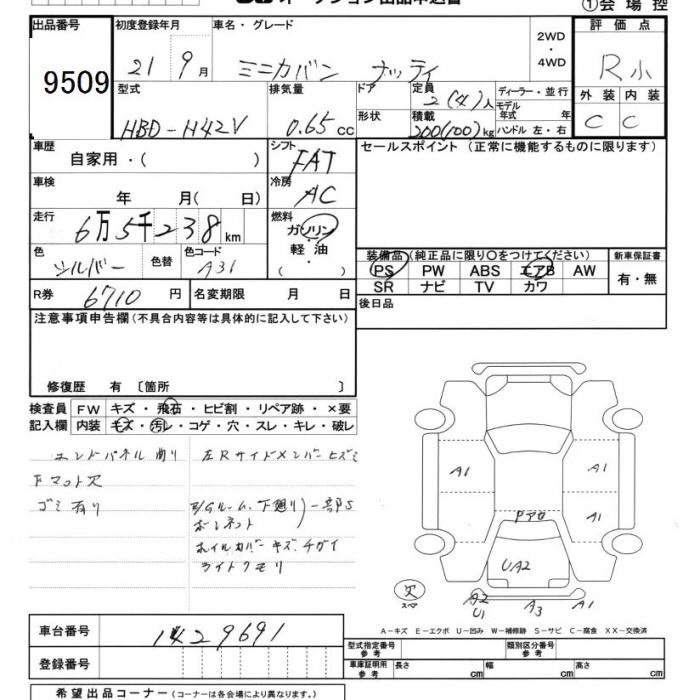 オークション出品申込書
①会場控
出品番号
9509
初度登録年月
21 9月
車名・グレード
ミニカバン ナッティ
2WD
・
4WD
評価点
R小
外装 内装
C C
型式
HBD-H42V
排気量
0.65 cc
ドア
形状
定員
2(4)人
積載
200(100)kg
ディーラー・並行
モデル年式 年
ハンドル 左・右
車歴
自家用・( )
シフト
FAT
車検
年 月( 日)
冷房
AC
走行
6万5千238km
燃料
ガソリン
・
軽油
( )
色
シルバー
色替
色コード
A31
R券
6710円
名変期限 月 日
セールスポイント(正常に機能するものに限ります)
装備品(純正品に限り○をつけてください)
PS PW ABS エアB AW
SR ナビ TV カワ
新車保証書
有・無
後日品
注意事項申告欄(不具合内容等は具体的に記入して下さい)
修復歴 有〔箇所 〕
検査員記入欄
FW キズ・飛石・ヒビ割・リペア跡・×要
内装 キズ・汚レ・コゲ・穴・スレ・キレ・破レ
エンドパネル 曲り
左Rサイドメンバーヒズミ
Fマット欠
ゴミ有り
E/Gルーム、下廻り)一部S
ボンネット
ホイルカバーキズ、チガイ
ライトクモリ
A1
A1
A1
Fアロ
UA2
欠
スペア
A2
U1
A3
A1
A-キズ E-エクボ U-凹み W-補修跡 S-サビ C-腐食 XX-交換済
車台番号
1429691
登録番号
型式指定番号
参考
類別区分番号
参考
車庫証明用
参考
長さ cm
幅 cm
高さ cm
希望出品コーナー(コーナーは各会場により異なります。)